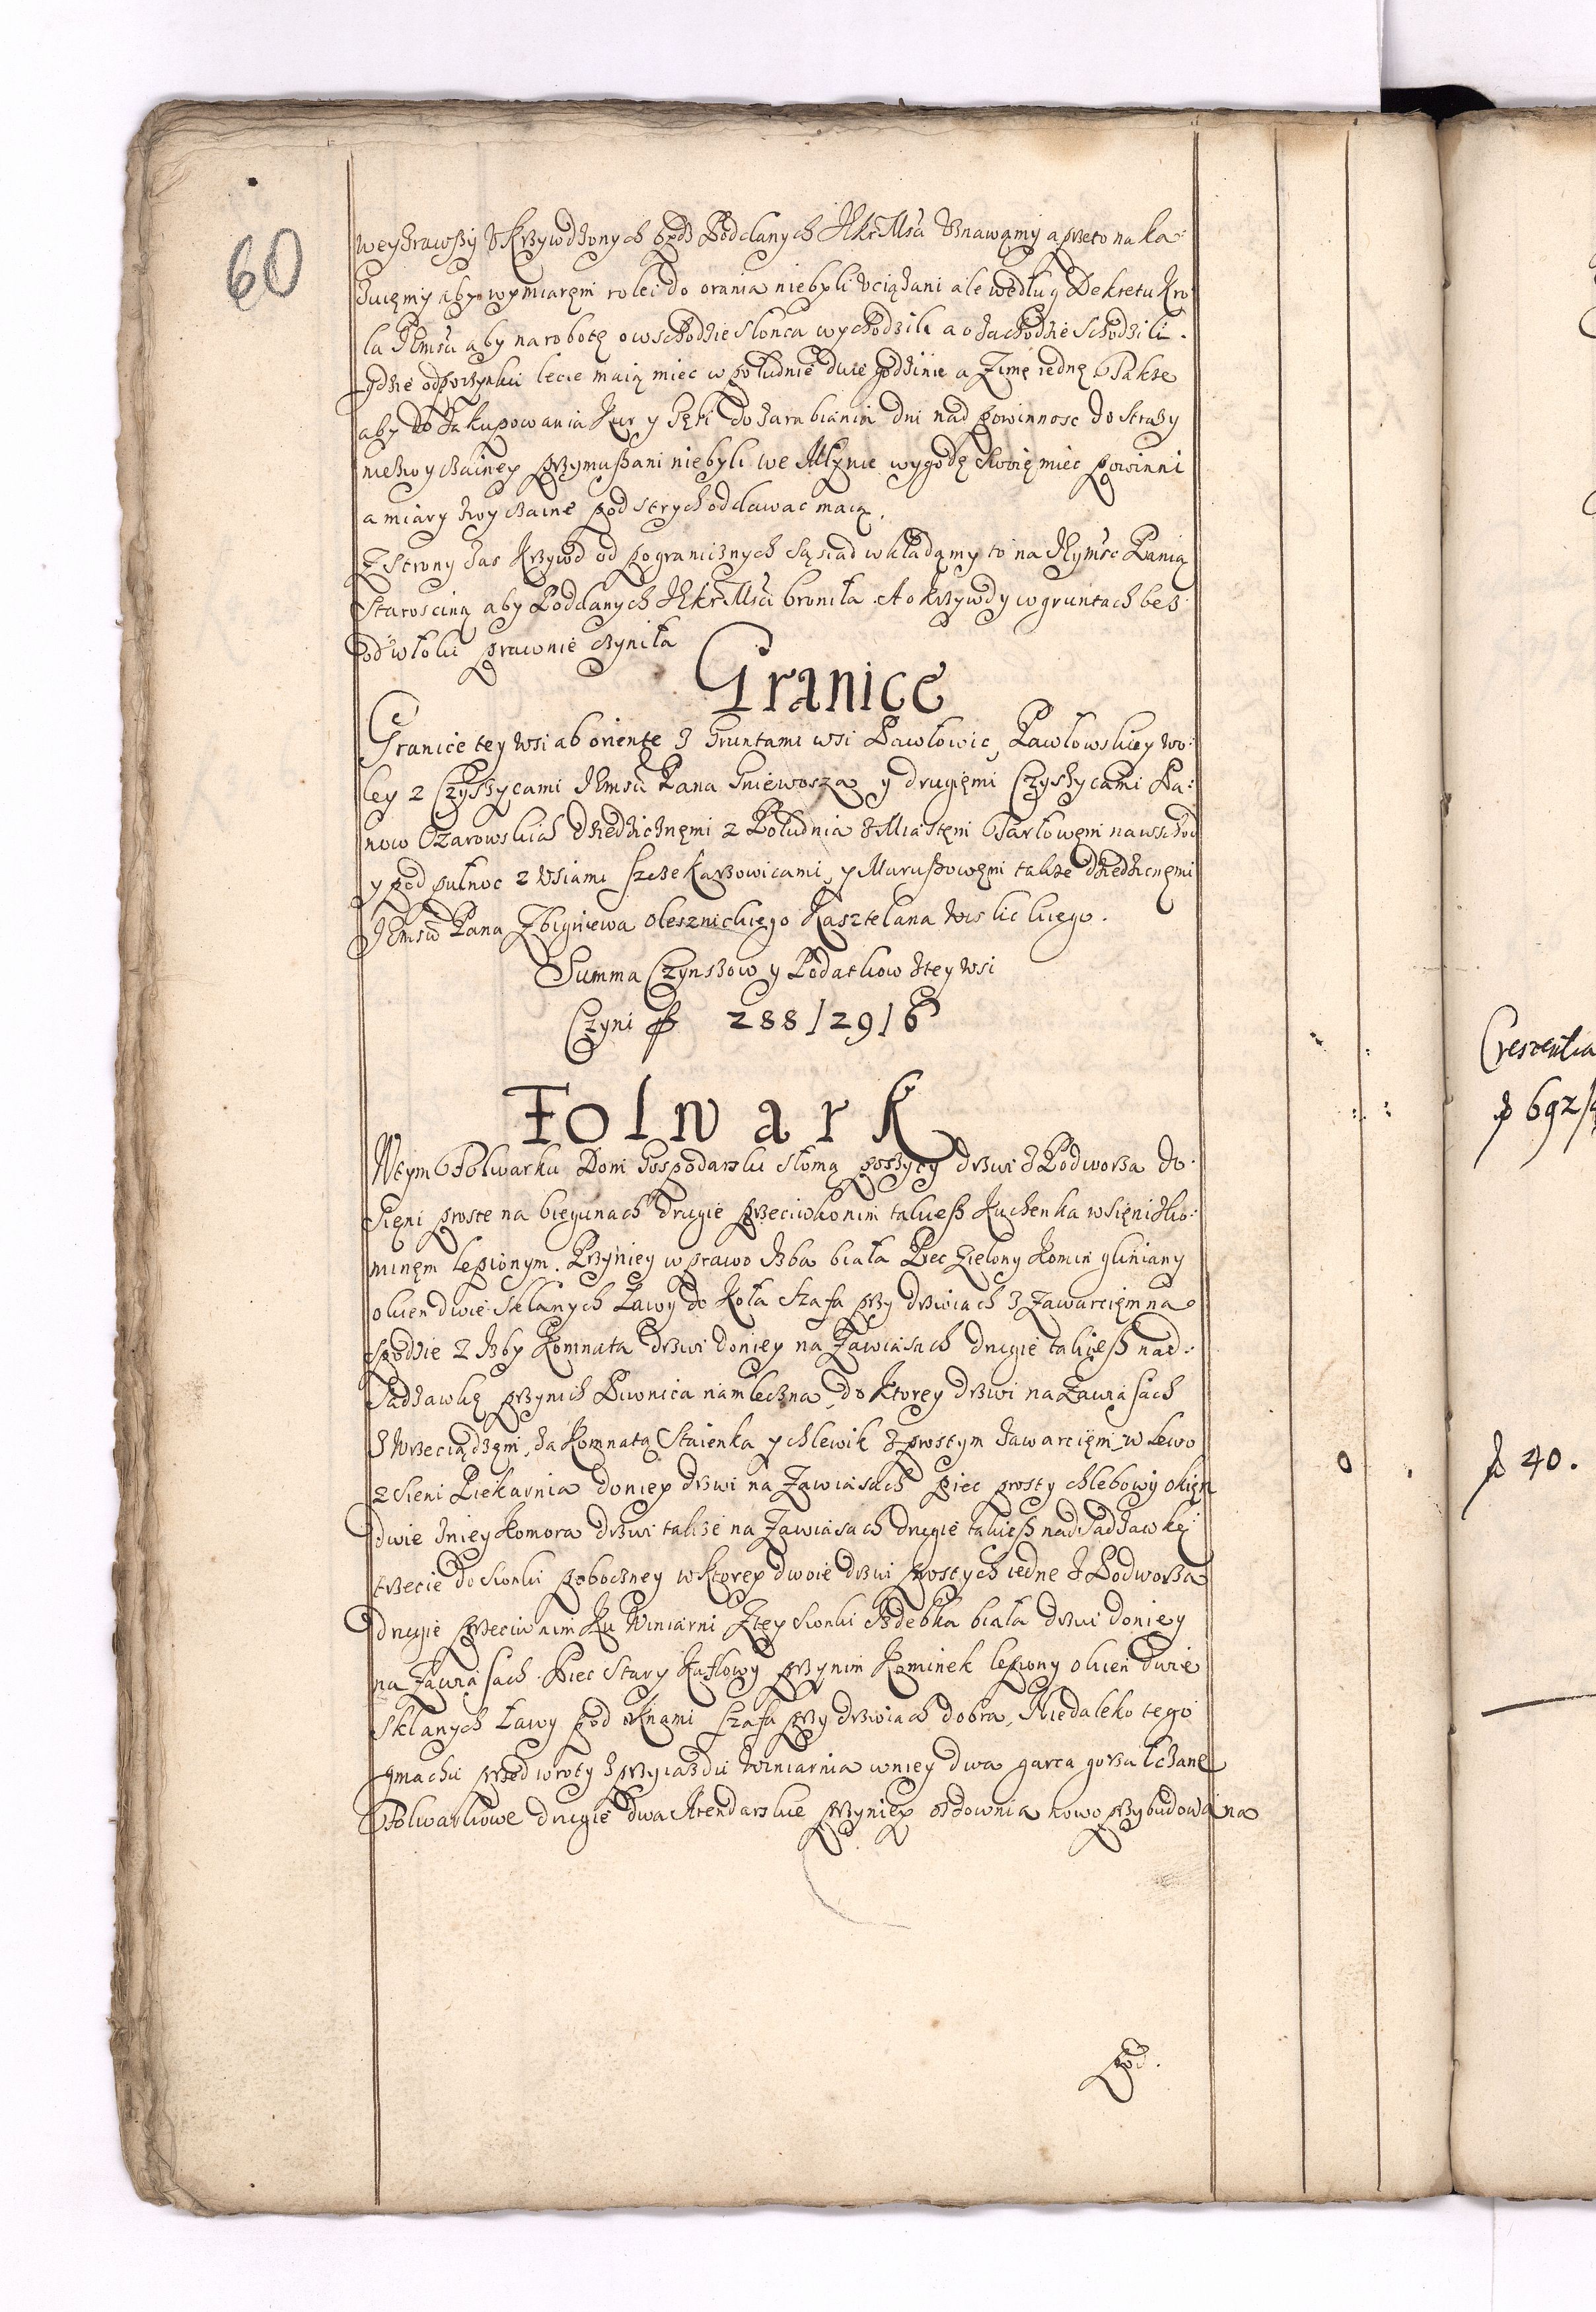 60
weyzrawszy Vkrzywdzonych bydz Poddanych JKr Msci Vznawamy a przeto naka=
zuięmy aby wymiaręm rolei do orania niebyli vciązani ale według Dekretu Kro=
la JEmsci aby na robotę o wschodzie słonca wychodzili a o zachodzie schodzili.
gdzie odpoczynku lecie maią miec w południe dwie godzinie a zimę iednę Takze
aby do zakupowania Kur y Gęsi do zarabiania dni nad powinnosc do strazy
niezwyczainey przymuszani niebyli we Młynie wygodę swoię miec powinni
a miary zwyczaine pod strych oddawac maią.
Z Strony zas Krzywd od pogranicznych sąsiad wkładamy to na JEymsc Panią
Staroscinę aby Poddanych JKr Msci broniła. A o krzywdy w gruntach bez
odwłoki prawnie czyniła
Granice
Granice tey wsi ab oriente z Gruntami wsi Pawłowic, Pawłowskiey wo=
ley z Czyszycami JEmsci Pana Gniewosza y drugięmi Czyszycami Pa=
now Ozarowskich dziedzicznęmi z Południa z Miastęm Tarłowęm na wschod
y pod pułnoc z wsiami Szczekarzowicami, y Maruszowęm takze dziedzicznęmi
JEmsci Pana Zbigniewa Olesznickiego Kasztelana Wislickiego.
Summa Czynszow y Podatkow z tey wsi
Czyni f 288/29/6
Folwark
W tym Folwarku Dom Gospodarski słomą poszyty drzwi z Podworza do=
sięni proste na biegunach drugie przeciwko nim takiesz Kuchenka w sięni z ko=
minęm lepionym. Przy niey w prawo Izba biała Piec zielony Komin gliniany
okien dwie sklanych Ławy do koła szafa przy drzwiach z zawarcięm na
spodzie z Izby Komnata drzwi do niey na zawiasach drugie takiesz nad=
sadzawkę przy nich Piwnica na mleczna, do ktorey drzwi na zawiasach
z wrzeciądzęm, za Komnatą Staienka y chlewik z prostym zawarcięm, w Lewo
z Sieni Piekarnia do niey drzwi na zawiasach piec prosty chlebowy okięn
dwie z niey Komora drzwi takze na zawiasach drugie takiesz nad sadzawkę
trzecie do sionki poboczney w ktorey dwoie drzwi prostych iedne z Podworza
drugie przeciw nim ku Winiarni z tey sionki Izdebka biała drzwi do niey
na zawiasach Piec stary kaflowy przy nim Kominek lepiony okien dwie
sklanych Ławy pod oknami szafa przy drzwiach dobra, Niedaleko tego
gmachu przed wroty z przyiazdu Winiarnia w niey dwa garca gorzałczane
Folwarkowe drugie dwa Arendarskie przy niey ozdownia nowo przybudowana
pod.
Crescentia
f 692/
f 40.